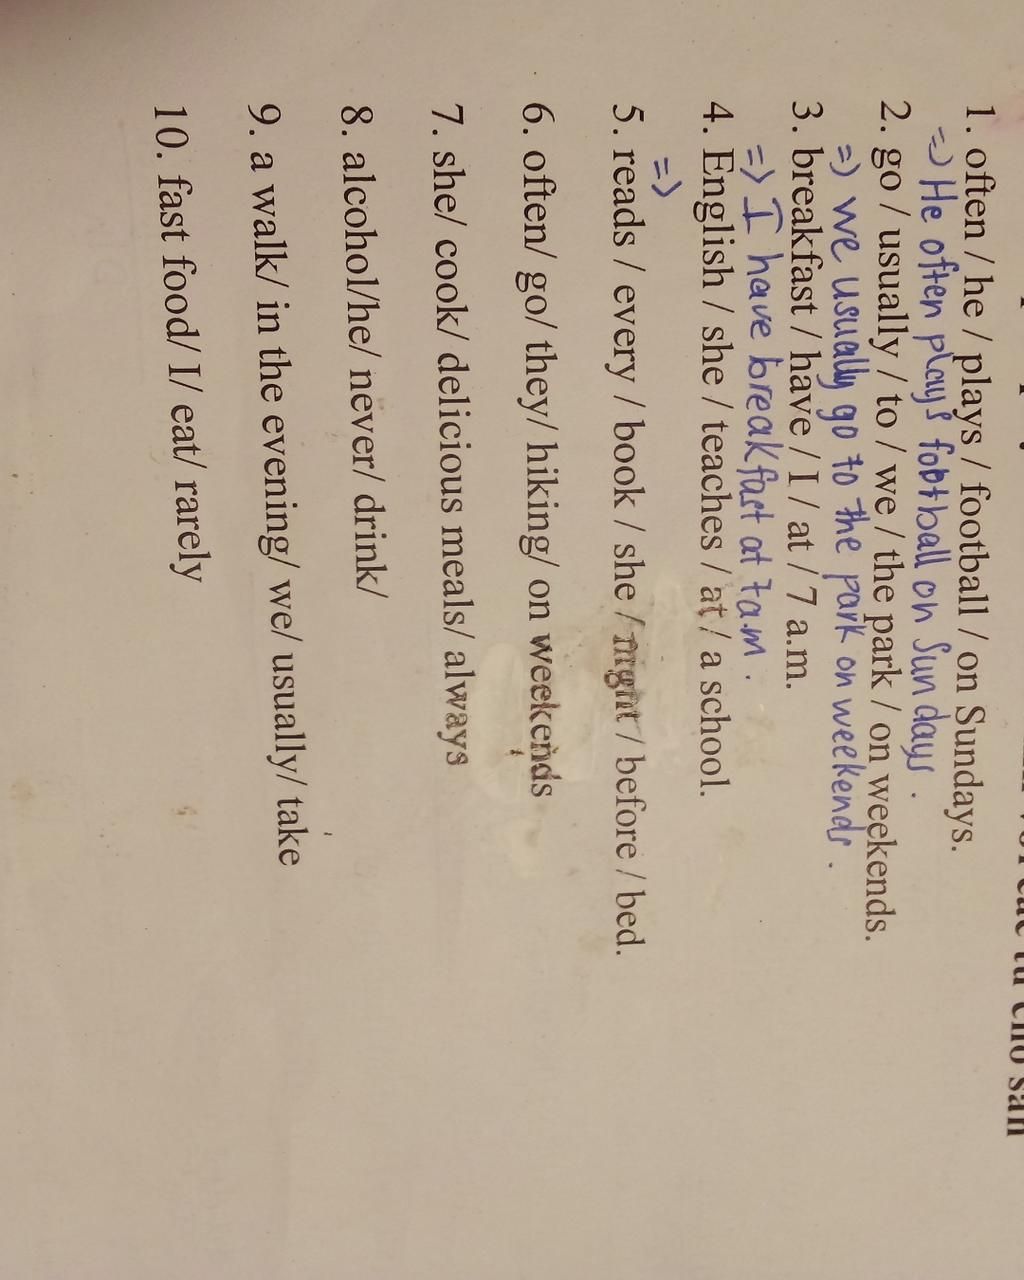 từ cho sẵn
1. often / he / plays / football / on Sundays.
=> He often plays football on Sundays.
2. go / usually / to / we / the park / on weekends.
=> we usually go to the park on weekends.
3. breakfast / have / I / at / 7 a.m.
=> I have breakfast at 7a.m.
4. English / she / teaches / at / a school.
=>
5. reads / every / book / she / night / before / bed.
6. often/ go/ they/ hiking/ on weekends
7. she/ cook/ delicious meals/ always
8. alcohol/he/ never/ drink/
9. a walk/ in the evening/ we/ usually/ take
10. fast food/ I/ eat/ rarely